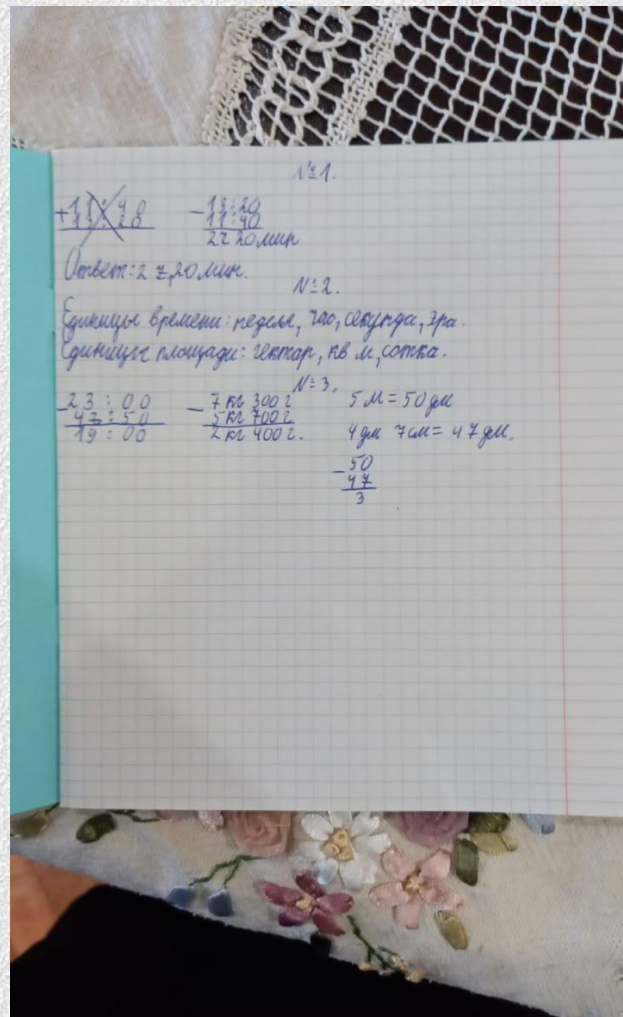 №1.
+ 11:40
- 13:20
11:40
2ч 20 мин
Ответ: 2 ч, 20 мин.
№2.
Единицы времени: неделя, час, секунда, эра.
Единицы площади: гектар, кв м, сотка.
№3.
- 23:00
47:50
19:00
- 7 кг 300 г
5 кг 700 г
2 кг 400 г.
5 м = 50 дм
4 дм 7 см = 47 дм.
- 50
47
3